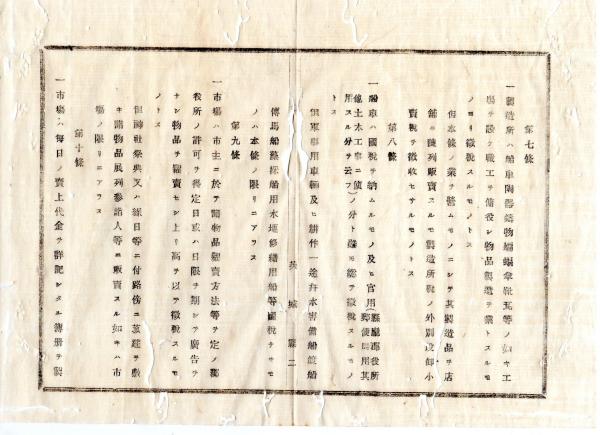 第七條
一製造所ハ船車陶器鑄物蝙蝠傘靴瓦等ノ如キ工
塲ヲ設ケ職工ヲ備役シ物品製造ヲ業トスルモ
ノヨリ徵稅スルモノトス
但本條ノ業ヲ營ムモノニシテ其製造品ヲ店
舖ニ陳列販賣スルモ製造所稅ノ外別段卸小
賣稅ヲ徵收セサルモノトス
第八條
一船車ハ國稅ヲ納ムルモノ及ヒ官用(縣廳郡役所郵便局用其
他土木工事ニ使用スル分ヲ云フ)ノ分ト雖モ總テ徵稅スルモノ
トス
但軍事用車輛及ヒ耕作一途幷水害備船渡船
傳馬船藻採船用水堰修繕用船等國稅ナキモ
ノハ本條ノ限リニアラス
第九條
一市塲ハ市主ニ於テ開物品糶賣方法等ヲ定メ郡
役所ノ許可ヲ得定日或ハ日限ヲ期シテ廣告ヲ
ナシ物品ヲ糶賣セシ上リ高ヲ以テ徵稅スルモ
ノトス
但神社祭典又ハ緣日等ニ付路傍ニ莚ヲ敷
キ諸物品展列參詣人等ニ販賣スル如キハ市
塲ノ限リニアラス
第十條
一市塲ハ每日ノ賣上代金ヲ詳記シタル簿册ヲ製
茨城縣